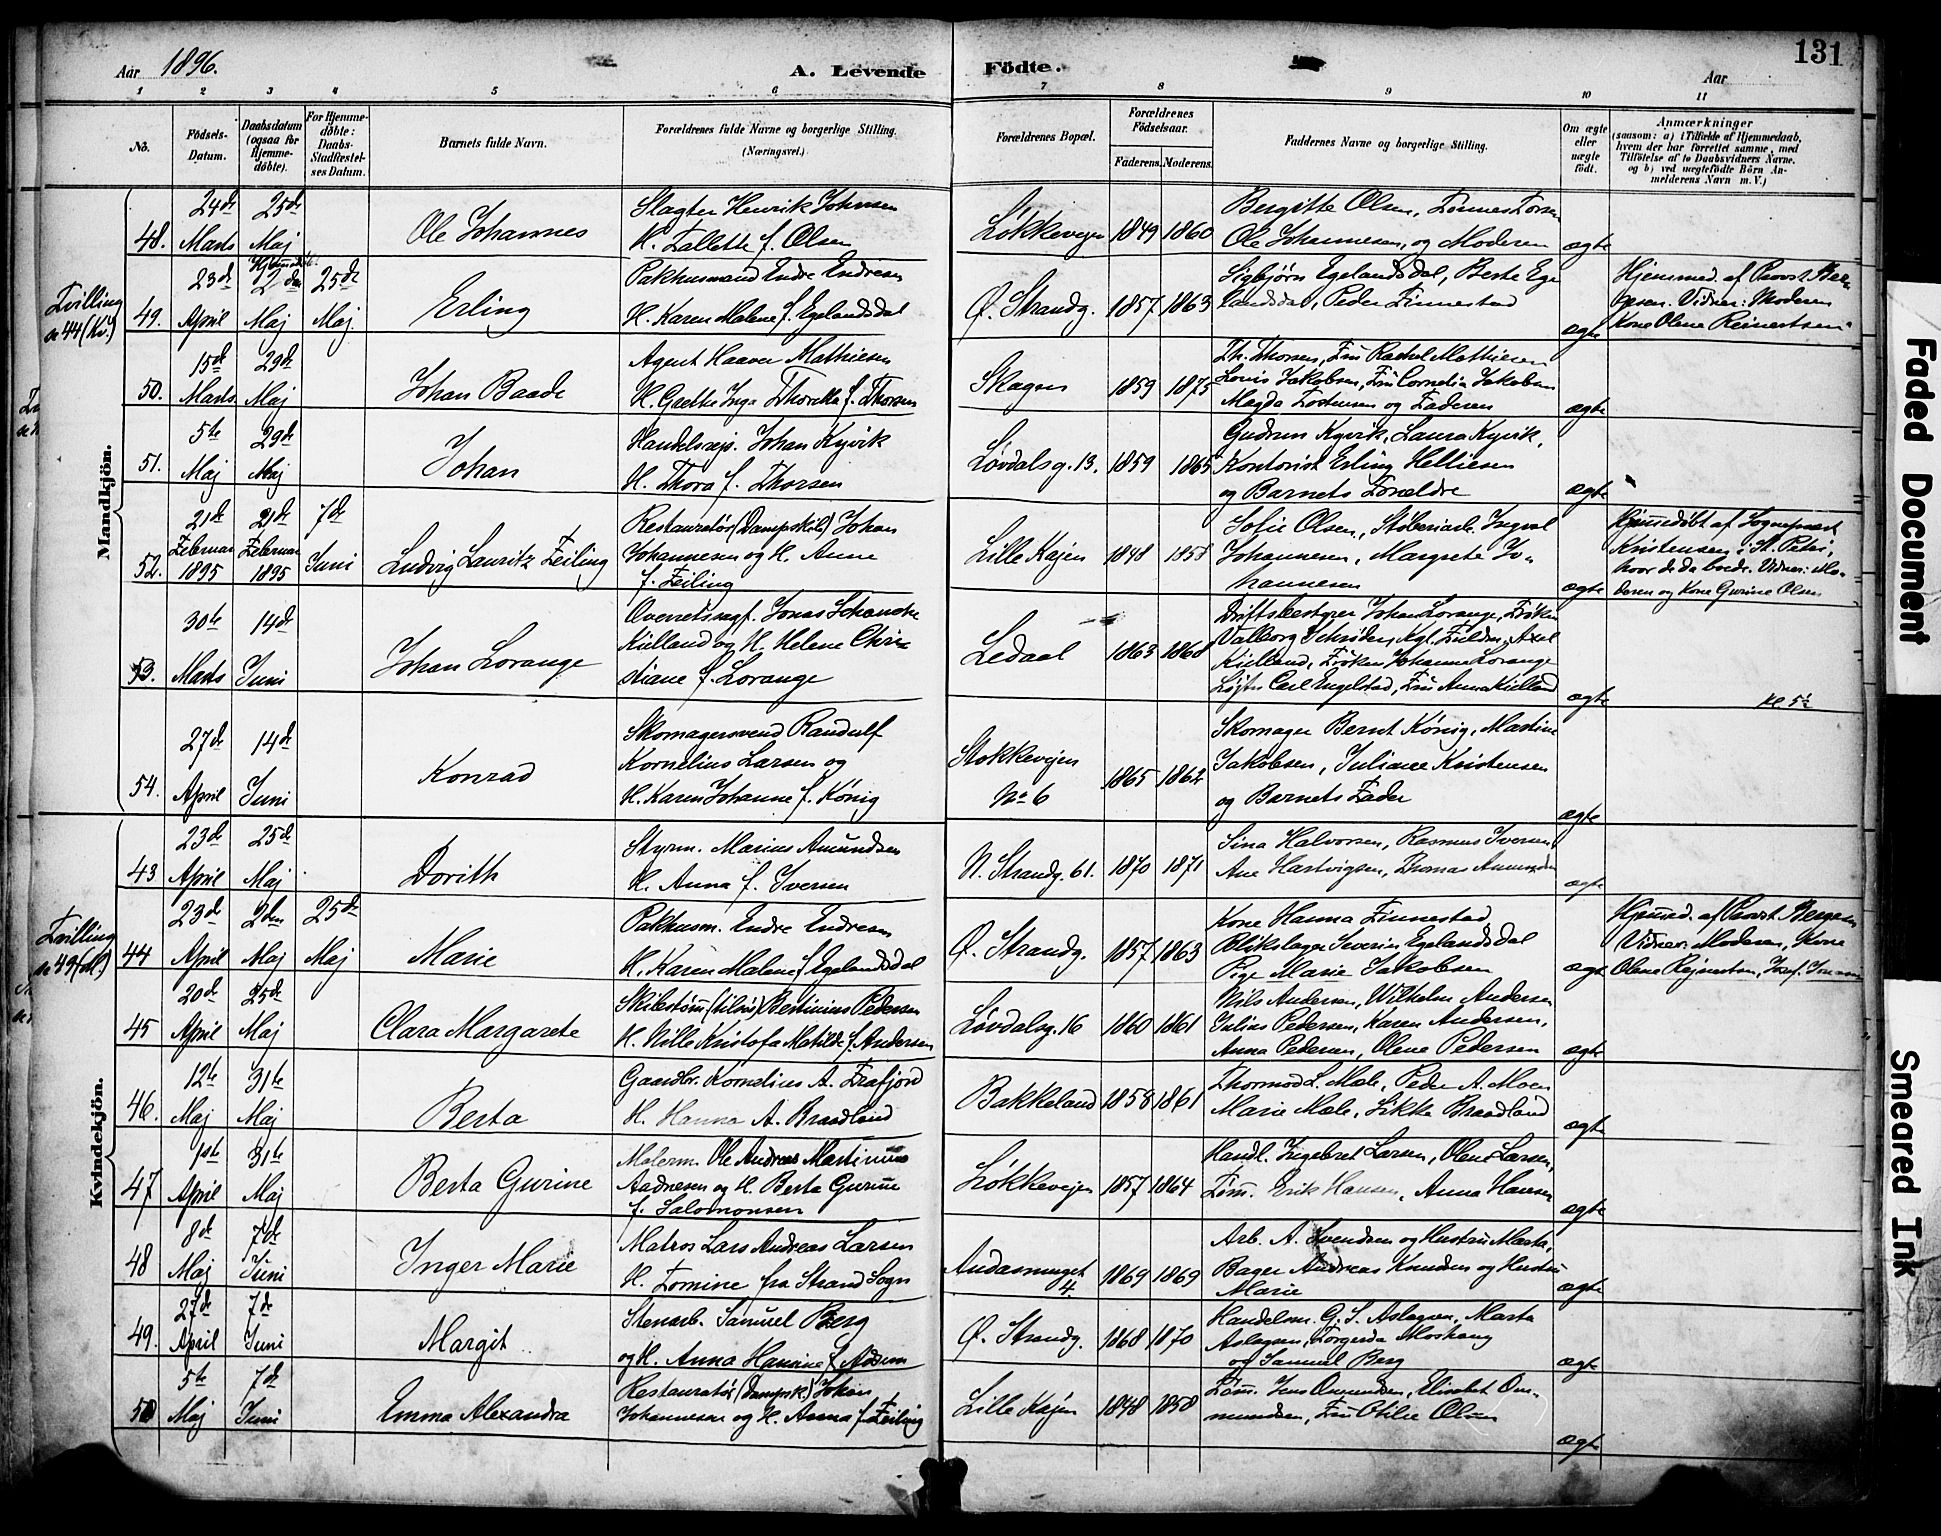 131
Aar 1896.
A. Levende Födte.
Aar
1 2 3 4 5 6 7 8 9 10 11
No.
Födsels-Datum.
Daabsdatum (ogsaa for Hjemme-døbte).
For Hjemme-døbte: Daabs-Stadfæstel-ses Datum.
Barnets fulde Navn.
Forældrenes fulde Navne og borgerlige Stilling.
(Næringsvei.)
Forældrenes Bopæl.
Forældrenes Födselsaar.
Faderens. Moderens.
Faddernes Navne og borgerlige Stilling.
Om ægte eller uægte födt.
Anmærkninger
(saasom: a) i Tilfælde af Hjemmedaab, hvem der har forrettet samme, med Tilföielse af to Daabsvidners Navne. og b) ved uægtefödte Börn An-melderens Navn m. V.)
Mandkjön.
48. 24de Marts 25de Maj
Ole Johannes
Slagter Henrik Johnsen
H. Tallette f. Olsen
Løkkevejen 1849 1860
Bergitte Olsen,
Ole Johannesen, og Moderen
ægte
Tvilling
se 44 (Kv.)
49. 23de April 2den Maj 25de Maj
Erling
Pakhusmand Endre Endresen
H. Karen Malene f. Egelandsdal
Ø. Strandg. 1857 1863
Sigbjørn Egelandsdal, Berte Ege
landsdal, Peder Finnestad
ægte
Hjemmed. af Provst Ber
gesen. Vidner: Moderen
Kone Olene Reinertsen
50. 15de Marts 29de Maj
Johan Baade
Agent Haaver Mathiesen
H. Goethe Inga Thorcka f. Thorsen
Skagen 1859 1875
Th. Thorsen, Fru Rachel Mathiesen
Louis Jakobsen, Fru Cornelia Jakobsen
Magda Torstensen og Faderen
ægte
51. 5te Maj 29de Maj
Johan
Handelsrejs. Johan Kyvik
H. Thora f. Thorsen
Løvdalsg. 13. 1859 1865
Gudrun Kyvik, Laura Kyvik,
Kontorist Erling Helliesen
og Barnets Forældre
ægte
52. 21de Februar 1895 21de Februar 1895 7de Juni
Ludvig Lauritz Feiling
Restauratør (Dampskib) Johan
Johannesen og H. Anne
f. Feiling
Lille Kajen 1848 1858
Sofie Olsen, Støberiarb. Ingval
Johannesen, Margrete Jo-
hannesen
ægte
Hjemmedøbt af Sognepræst
Kristensen i St. Petri,
hvor de da boede. Vidner: Mo-
deren og Kone Gurine Olsen
53. 30te Marts 14de Juni
Johan Lorange
Overretssagf. Jonas Schanche
Kielland og H. Helene Chri-
stiane f. Lorange
Ledaal 1863 1868
Driftsbestyrer Johan Lorange, Frøken
Valborg Schrøder, Kgl. Fuldm. Axel
Kielland, Frøken Johanne Lorange
Løjtn. Carl Engelstad, Fru Anna Kielland
ægte
Kl 5½
54. 27de April 14de Juni
Konrad
Skomagersvend Randulf
Kornelius Larsen og
H. Karen Johanne f. König
Stokkevejen
No 6
1865 1862
Skomager Bernt König, Martine
Jakobsen, Juliane Kristensen
og Barnets Fader
ægte
Kvindekjön.
43 23de April 25de Maj
Dorith
Styrm. Marius Amundsen
H. Anna f. Iversen
N. Strandg. 61. 1870 1871
Sina Halvorsen, Rasmus Iversen
Ane Hartvigsen, Thomas Amundsen
ægte
Tvilling
se 49 (M.)
44 23de April 2den Maj 25de Maj
Marie
Pakhusm. Endre Endresen
H. Karen Malene f. Egelandsdal
Ø. Strandg. 1857 1863
Kone Hanna Finnestad
Blikslager Severin Egelandsdal
Pige Marie Jakobsen
ægte
Hjemmed. af Provst Bergesen
Vidner: Moderen, Kone
Olene Rejnertsen,
45 20de April 25de Maj
Clara Margarete
Skibstømm. (tilsøs) Bertinius Pedersen
H. Nille Kristofa Matilde f. Andersen
Løvdalsg. 16 1860 1861
Nils Andersen, Wilhelm Andersen
Julius Pedersen, Karen Andersen,
Anna Pedersen, Olene Pedersen
ægte
46. 12te Maj 31te Maj
Berta
Gaardbr. Kornelius A. Frafjord
H. Hanna A. Braadland
Bakkeland 1858 1861
Thormod L. Mæle, Peder A. Moen
Marie Mæle, Sikke Braadland
ægte
47 1ste April 31te Maj
Berta Gurine
Malerm. Ole Andreas Martinus
Aadnesen og H. Berta Gurine
f. Salomonsen
Løkkevejen 1857 1864
Handl. Ingebret Larsen, Olene Larsen,
Tøm. Erik Hansen, Anna Hansen
ægte
48 8de Maj 7de Juni
Inger Marie
Matros Lars Andreas Larsen
H. Tomine fra Strand Sogn
Andasmuget
4
1869 1869
Arb. A. Svendsen og Hustru Marta,
Bager Andreas Knudsen og Hustru
Marie
ægte
49. 27de April 7de Juni
Margit
Stenarb. Samuel Berg
og H. Anna Hansine f. Adsen
Ø. Strandg. 1868 1870
Handelsm. G. S. Aslagsen, Marta
Aslagsen, Torgerda Moshaug
og Samuel Berg
ægte
50 5te Maj 7de Juni
Emma Alexandra
Restauratør (Dampsk.) Johan
Johannesen og H. Anna f. Feiling
Lille Kajen 1848 1858
Tøm. Jens Ommundsen, Elisabet Om-
mundsen, Fru Otilie Olsen
ægte
Faded Document
Smeared Ink